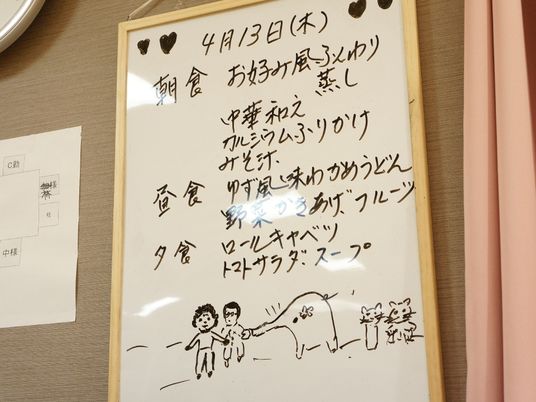 4月13日(木)
朝食 お好み風ふんわり
蒸し
中華和え
カルシウムふりかけ
みそ汁
昼食 ゆず風味わかめうどん
野菜かきあげ、フルーツ
夕食 ロールキャベツ
トマトサラダ、スープ
C勤
中様